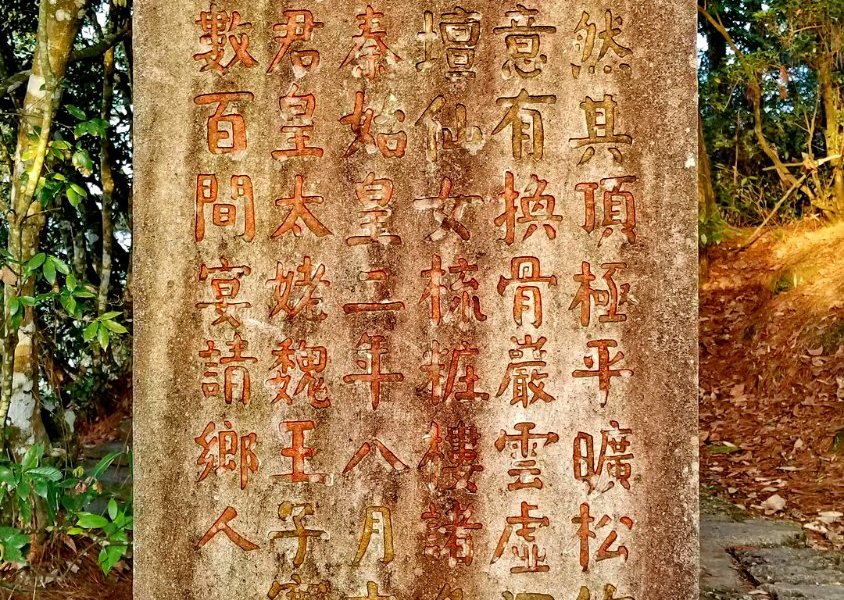 然其頂極平曠松
意有換骨巖雲虛
壇仙女梳粧樓諸
秦始皇二年八月
君皇太姥魏王子
數百間宴請鄉人